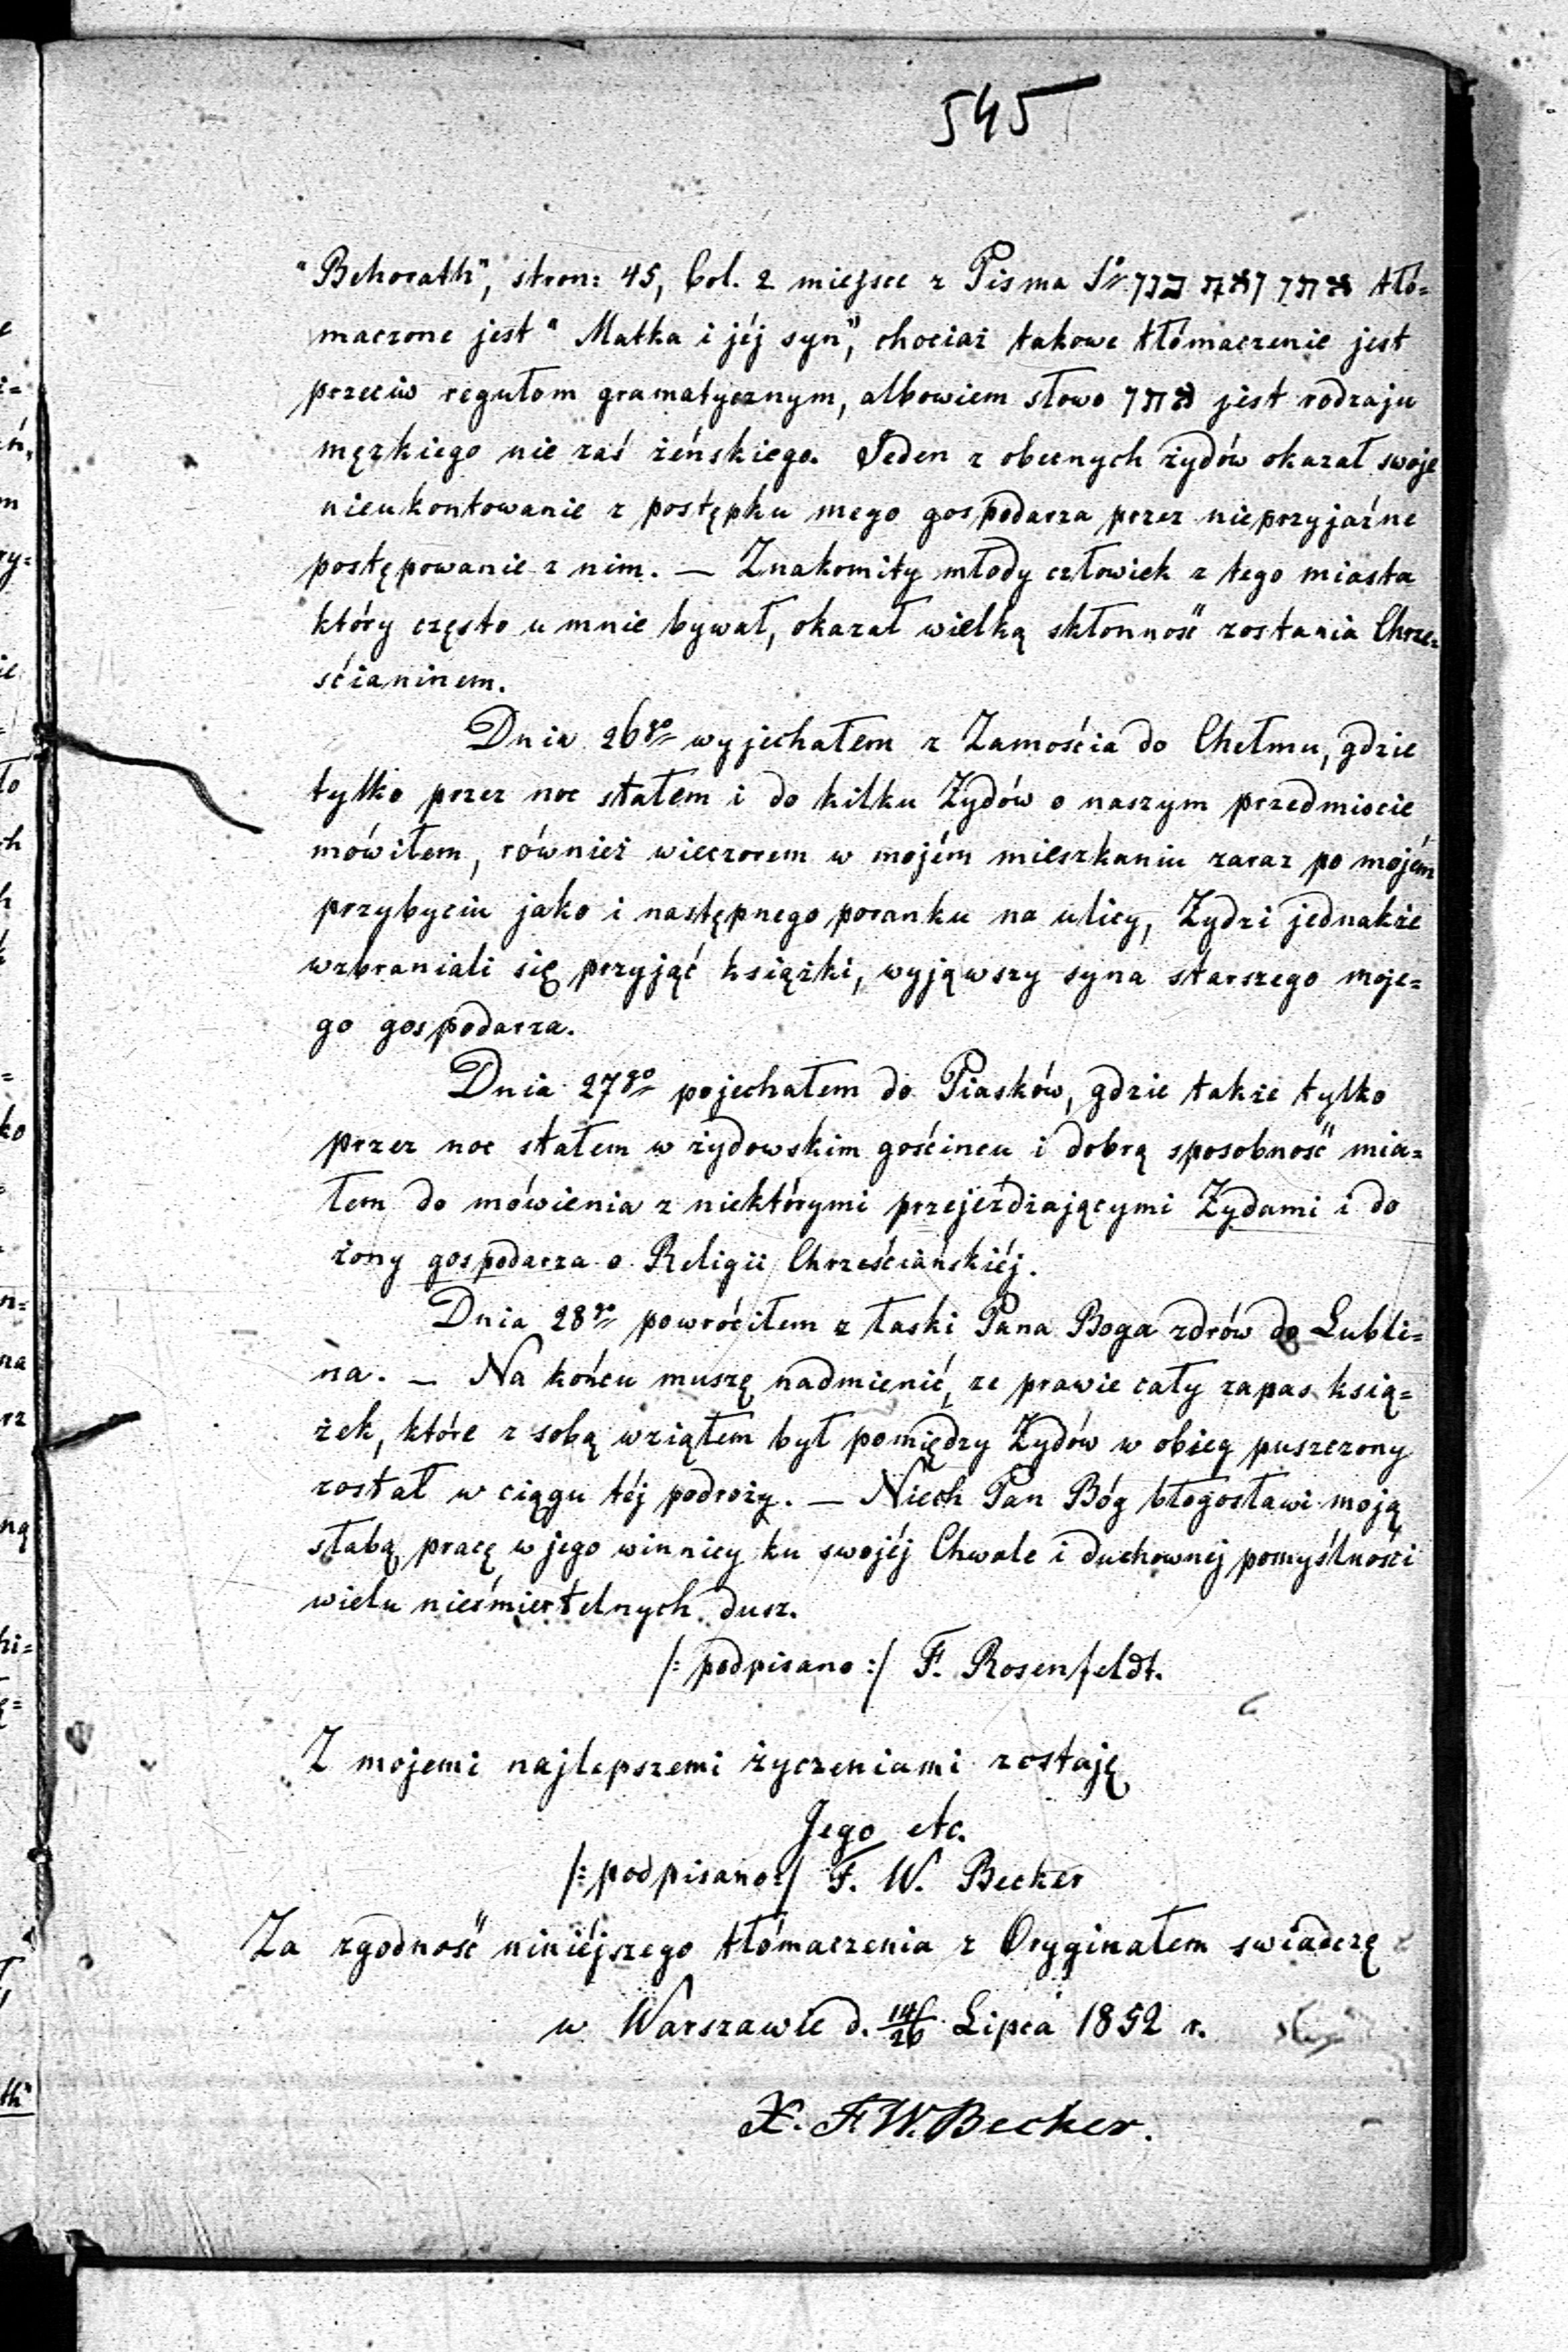 545
"Behorath", stron: 45, Col. 2 miejsce z Pisma Śº tłó-
maczone jest "Matka i jéj syn", chociaż takowe tłómaczenie jest
przeciw regułom gramatycznym, albowiem słowo jest rodzaju
męzkiego nie zaś żeńskiego. Jeden z obecnych żydów okazał swoje
nieukontowanie z postępku mego gospodarza przez nieprzyjaźne
postępowanie z nim. — Znakomity młody człowiek z tego miasta
który często u mnie bywał, okazał wielką skłonność zostania Chrze-
ścianinem.
Dnia 26go wyjechałem z Zamościa do Chełmu, gdzie
tylko przez noc stałem i do kilku Żydów o naszym przedmiocie
mówiłem, również wieczorem w mojém mieszkaniu zaraz po mojém
przybyciu jako i następnego poranku na ulicy, Żydzi jednakże
wzbraniali się przyjąć książki, wyjąwszy syna starszego moje-
go gospodarza.
Dnia 27go pojechałem do Piasków, gdzie także tylko
przez noc stałem w żydowskim gościncu i dobrą sposobność mia-
łem do mówienia z niektórymi przejeżdżającymi Żydami i do
żony gospodarza o Religii Chrześciańskiéj.
Dnia 28go powróciłem z łaski Pana Boga zdrów do Lubli-
na. — Na końcu muszę nadmienić, ze prawie cały zapas ksią-
żek, które z sobą wziąłem był pomiędzy Żydów w obieg puszczony
został w ciągu téj podroży. — Niech Pan Bóg błogosławi moją
słabą pracę w jego winnicy ku swojéj Chwale i duchownéj pomyślności
wielu nieśmiertelnych dusz.
/: podpisano :/ F. Rosenfeldt.
Z mojemi najlepszemi życzeniami zostaję
Jego etc.
/: podpisano :/ F. W. Becker
Za zgodność niniéjszego tłómaczenia z Oryginałem swiadczę
w Warszawie d. 14/26 Lipca 1852 r.
X. F. W. Becker.